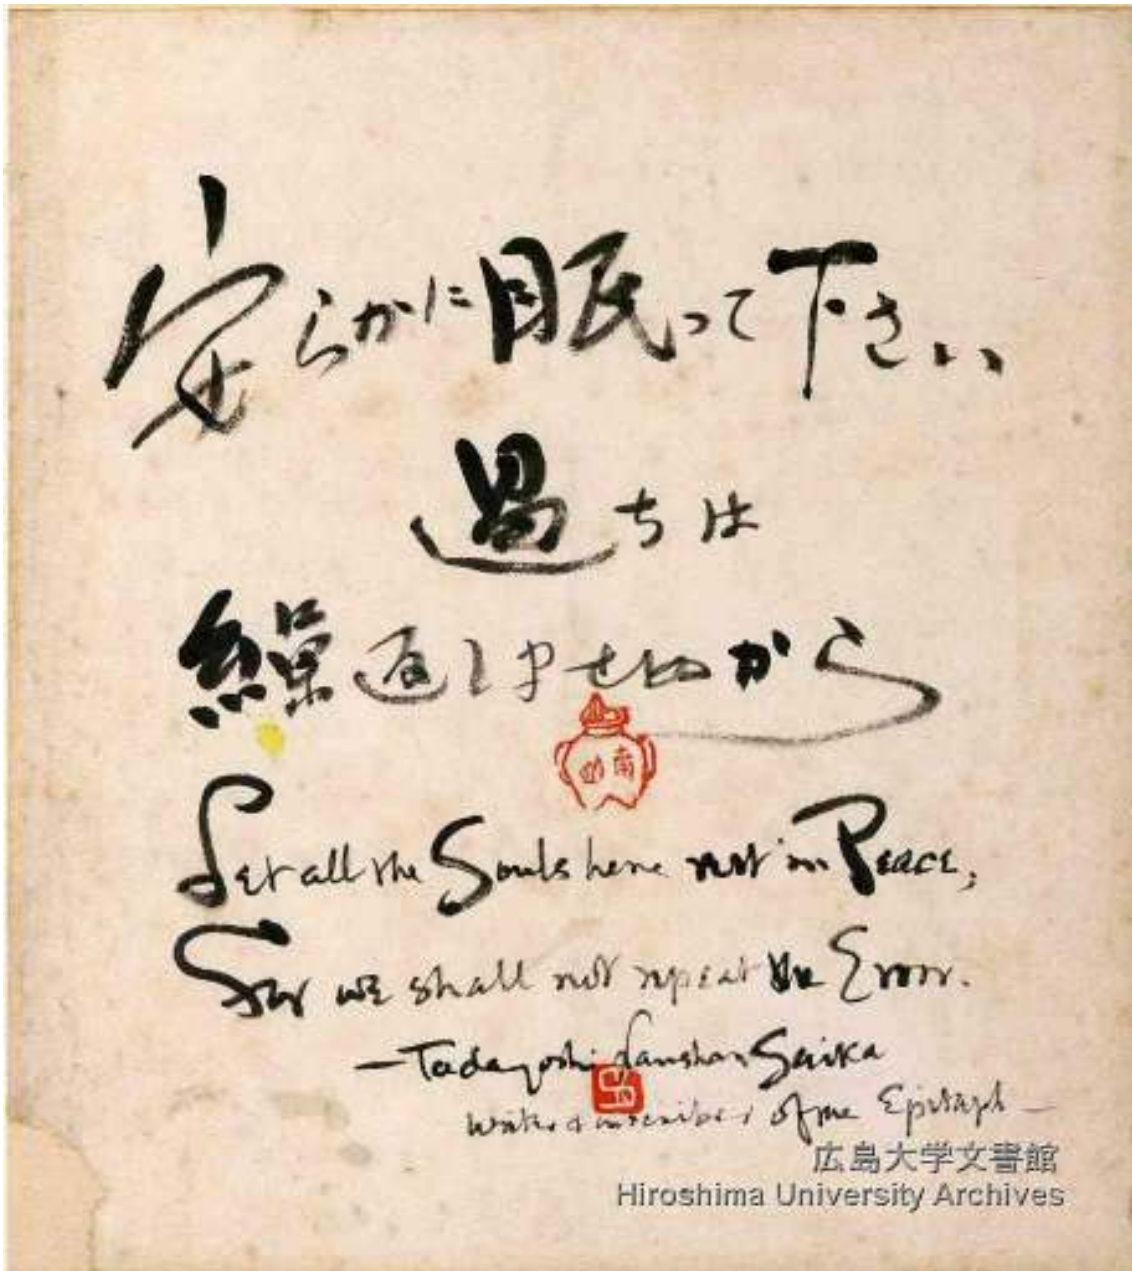 安らかに眠って下さい
過ちは
繰返しませぬから
Let all the Souls here rest in Peace;
For we shall not repeat the Error.
—Tadayoshi Saika
of the Epitaph —
広島大学文書館
Hiroshima University Archives